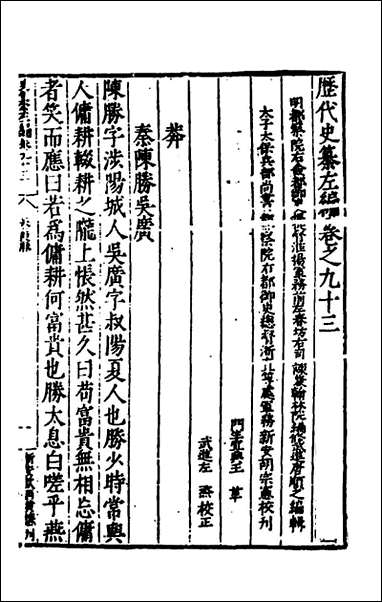 歷代史纂左編卷之九十三
明都察院右僉都御史奉敕提督淮揚軍務前左春坊右司諫兼翰林院編修武進唐順之編輯
太子太保兵部尚書兼都察院右都御史總督浙江等處軍務新安胡宗憲校刊
門生宜興王革
武進左烝校正
莽
秦陳勝吳廣
陳勝字涉陽城人吳廣字叔陽夏人也勝少時常與
人傭耕輟耕之隴上悵然甚久曰苟富貴無相忘傭
者笑而應曰若為傭耕何富貴也勝太息曰嗟乎燕